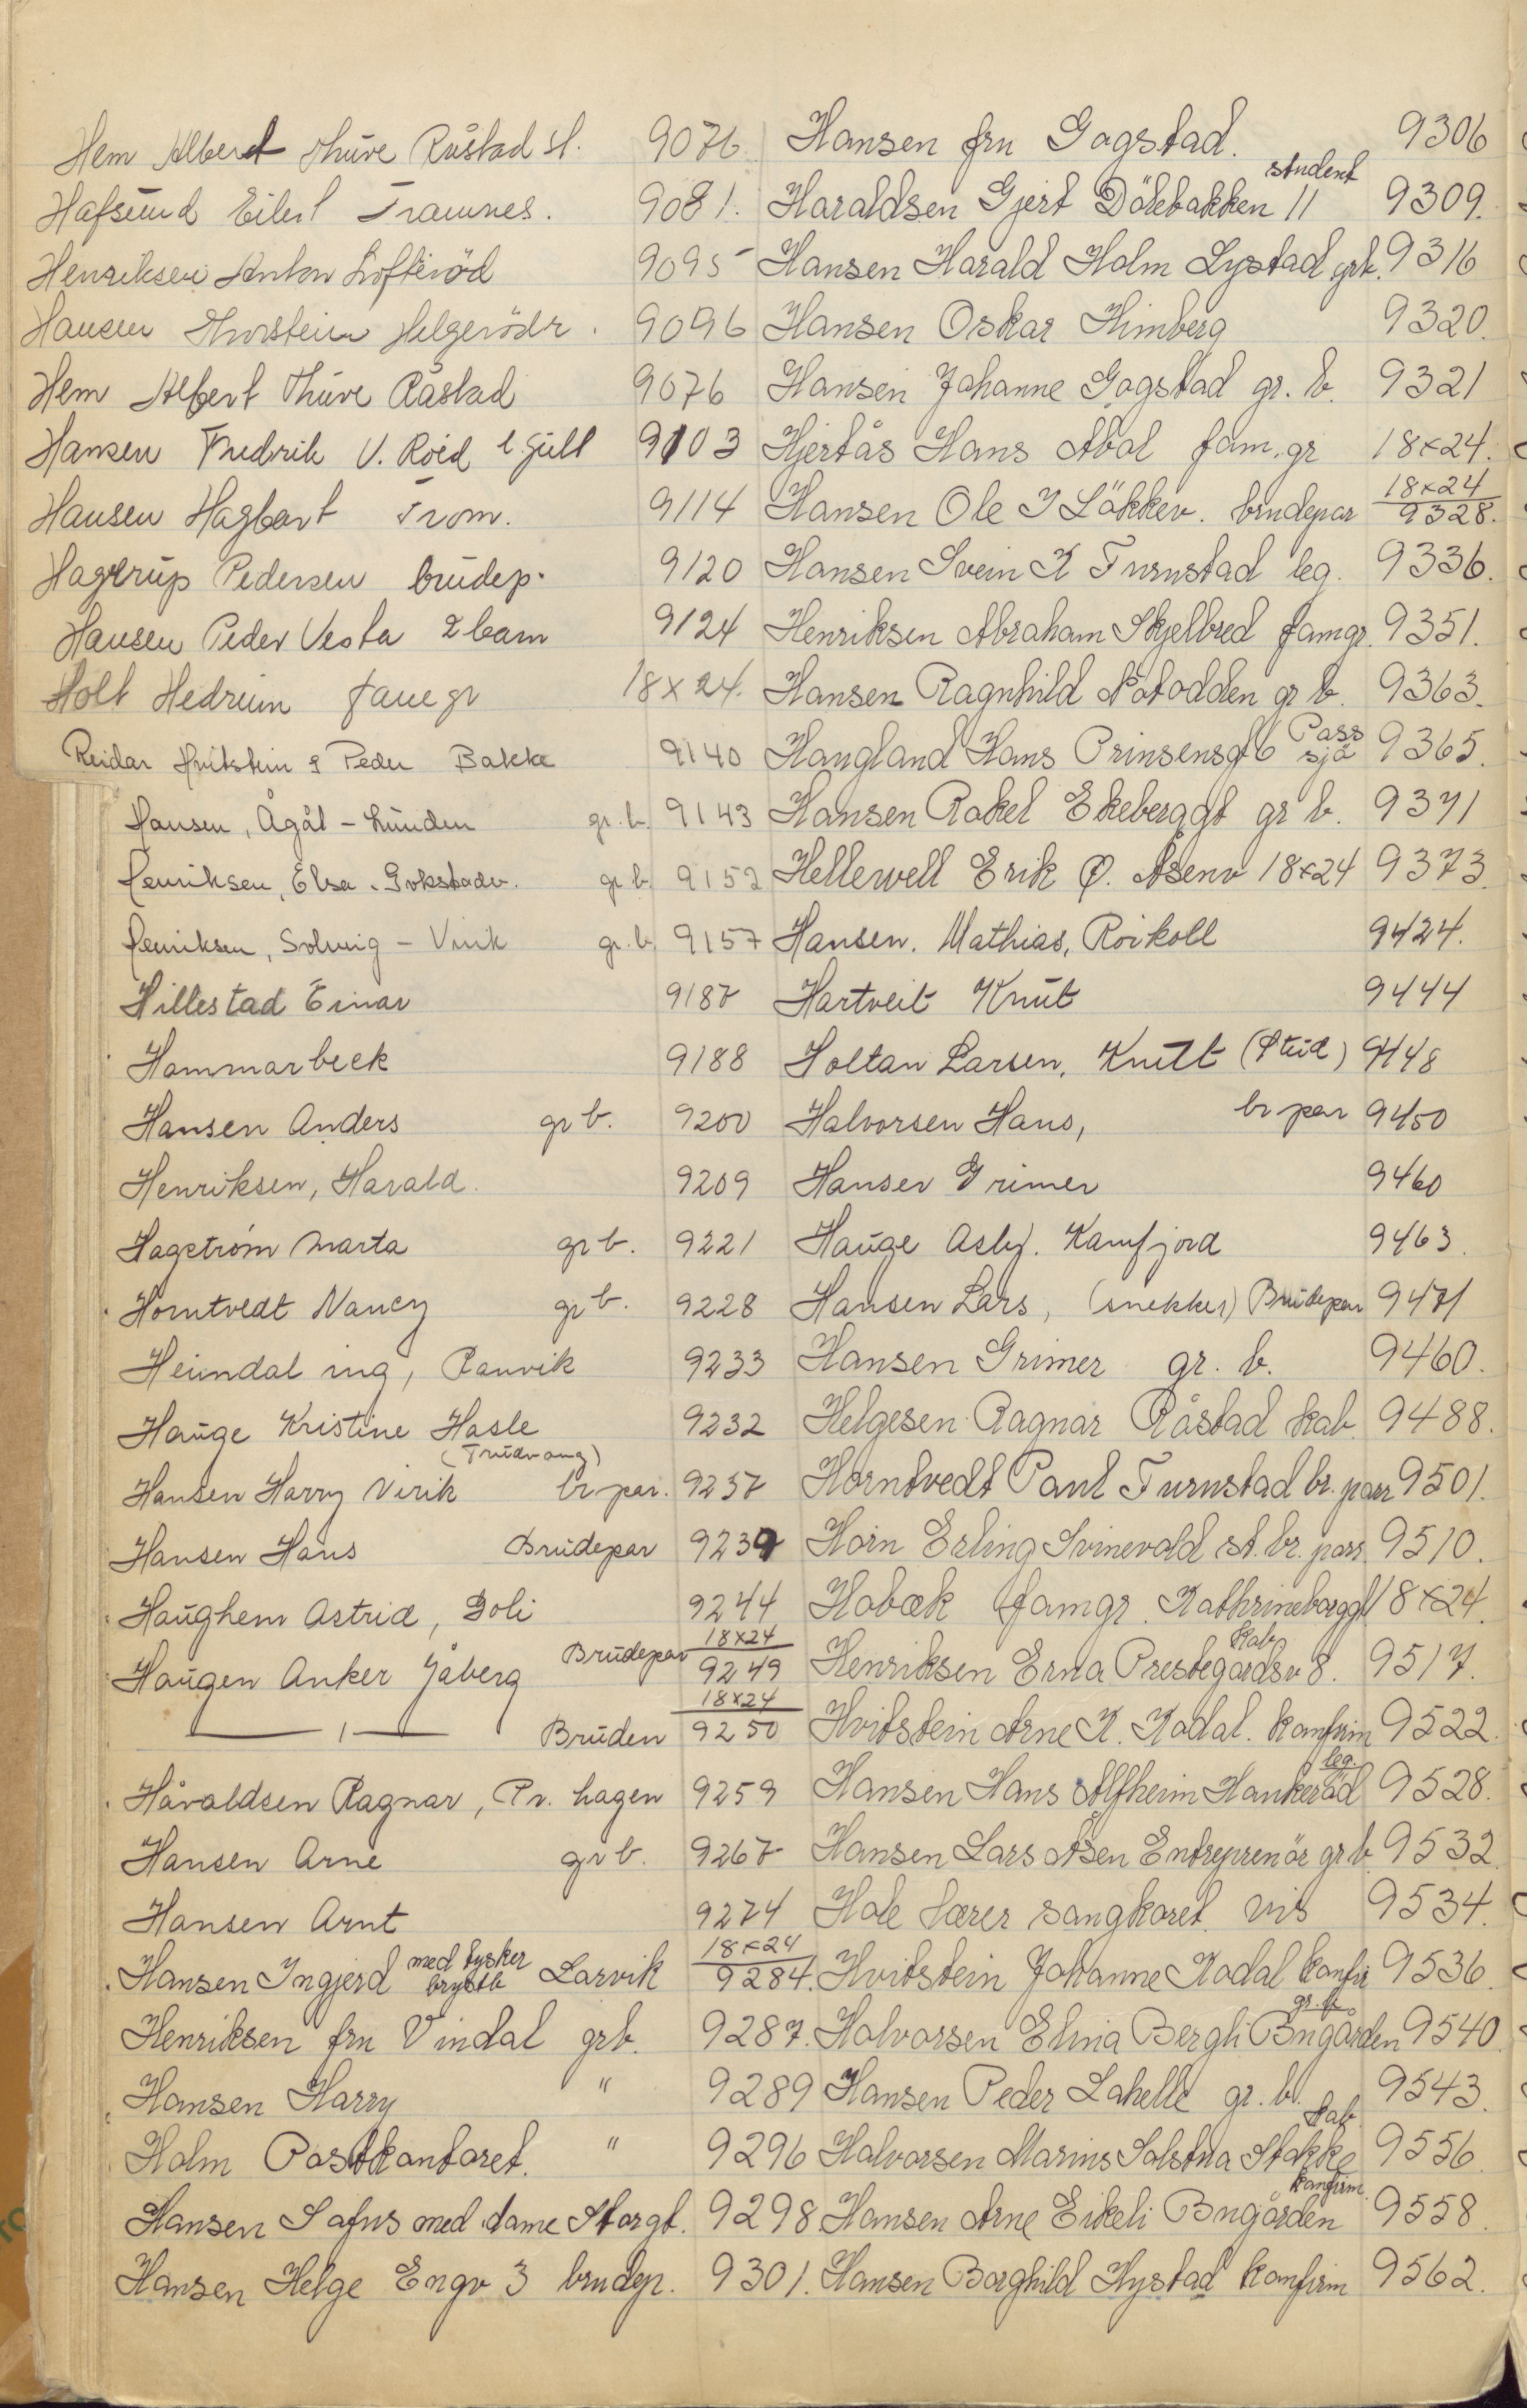 Hem Albert Thure Råstad st. 9076
Hafsund Eilert Tramnes. 9081.
Henriksen Anton Lofterød 9095
Hansen Thorstein Helgerødv. 9096
Hem Albert Thure Råstad 9076
Hansen Fredrik V. Roed l. gull 9103
Hansen Hagbart Trom. 9114
Hagerup Pedersen brudep. 9120
Hansen Peder Vesta 2 barn 9124
Holt Hedrum famgr 18x24.
Reidar Hvitstein & Peder Bakke 9140
Hansen, Ågåt - Lunden gr. b. 9143
Henriksen, Elsa. Gokstadv. gr. b. 9152
Henriksen, Solveig - Virik gr. b. 9157
Hillestad Einar 9187
Hammarbeck 9188
Hansen Anders gr b. 9200
Henriksen, Harald. 9209
Hagstrøm Marta gr b. 9221
Horntvedt Nancy gr b. 9228
Heimdal ing, Ranvik 9233
Hauge Kristine Hasle 9232
(Tridvang)
Hansen Harry Virik br par. 9237
Hansen Hans Brudepar 9239
Haughem Astrid, Goli 9244
Haugen Anker Jåberg Brudepar 18x24 9249
— 1 — Bruden 18x24 9250
Håraldsen Ragnar, Pr. hagen 9259
Hansen Arne gr b. 9267
Hansen Arnt 9274
Hansen Ingjerd med tysker brystb Larvik 18x24 9284.
Henriksen fru Vindal grb. 9287.
Hansen Harry " 9289
Holm Postkontoret. " 9296
Hansen Safus med dame Storgt. 9298
Hansen Helge Engv 3 brudep. 9301.
Hansen fru Gogstad. 9306
student
Haraldsen Gjert Dölebakken 11 9309.
Hansen Harald Holm Lystad grb. 9316
Hansen Oskar Himberg 9320.
Hansen Johanne Gogstad gr. b. 9321
Hjertås Hans Abol fam. gr 18x24.
Hansen Ole J Løkkev. brudepar 18x24 9328.
Hansen Svein K Furustad leg. 9336.
Henriksen Abraham Skjelbred famgr. 9351.
Hansen Ragnhild Notodden gr b. 9363.
Haugland Hans Prinsensgt 6 Pass sjö 9365.
Hansen Rakel Ekeberggt gr b. 9371
Hellewell Erik Ø. Åsenv 18x24 9373.
Hansen. Mathias, Roikoll 9424.
Hartveit Knut 9444
Holtan Larsen, Knut (Stud) 9448
Halvorsen Hans, br par 9450
Hansen Grimer 9460
Hauge Asbj. Kamfjord 9463.
Hansen Lars, (snekker) Brudepar 9471
Hansen Grimer gr. b. 9460.
Helgesen Ragnar Råstad kab. 9488.
Horntvedt Paul Furustad br. parr 9501.
Horn Erling Svinevold st. br. parr. 9510.
Hobæk famgr. Kathrineborggt 18x24.
Kab
Henriksen Erna Prestegårdsv 8. 9517.
Hvitstein Arne K. Kodal. konfirm 9522.
leg.
Hansen Hans Alfheim Haukeröd 9528.
Hansen Lars Åsen Entreprenör gr b 9532.
Hole lærer sangkoret. vis 9534.
Hvitstein Johanne Kodal konfir 9536.
gr. b.
Halvorsen Elina Bergli Bugården 9540.
Hansen Peder Lahelle gr. b. 9543.
Kab
Halvorsen Marius Solstua Stokke 9556.
konfirm.
Hansen Arne Eikeli Bugården 9558.
Hansen Borghild Hystad konfirm 9562.